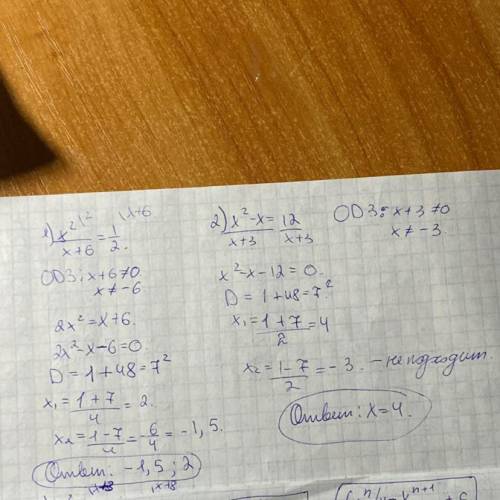 1) x²/(x+6) = 1/2  |2  |x+6
ОДЗ: x+6≠0.
x≠-6
2x²=x+6.
2x²-x-6=0
D=1+48=7²
x₁=(1+7)/4=2.
x₂=(1-7)/4=-6/4=-1,5.
Ответ: -1,5; 2
2) (x²-x)/(x+3)=12/(x+3)
ОДЗ: x+3≠0
x≠-3
x²-x-12=0.
D=1+48=7²
x₁=(1+7)/2=4
x₂=(1-7)/2=-3. - не подходит.
Ответ: x=4.